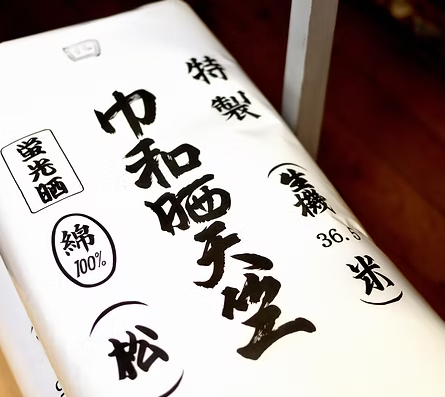 特製
巾和晒天竺
(生機
36.5
米)
蛍光晒
綿
100%
(松)